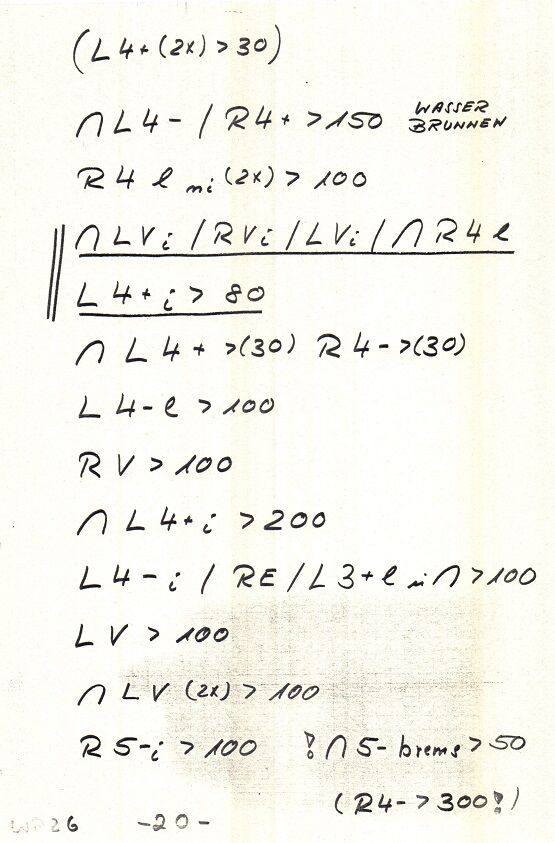 (L4+(2x)>30)
∩L4-/R4+>150 WASSER
BRUNNEN
R4 l ni(2x)>100
∩LVi/RVi/LVi/∩R4l
L4+i>80
∩L4+>(30) R4->(30)
L4-l>100
RV>100
∩L4+i>200
L4-i/RE/L3+l in∩>100
LV>100
∩LV(2x)>100
R5-i>100 !∩5-brems>50
(R4->300!)
-20-